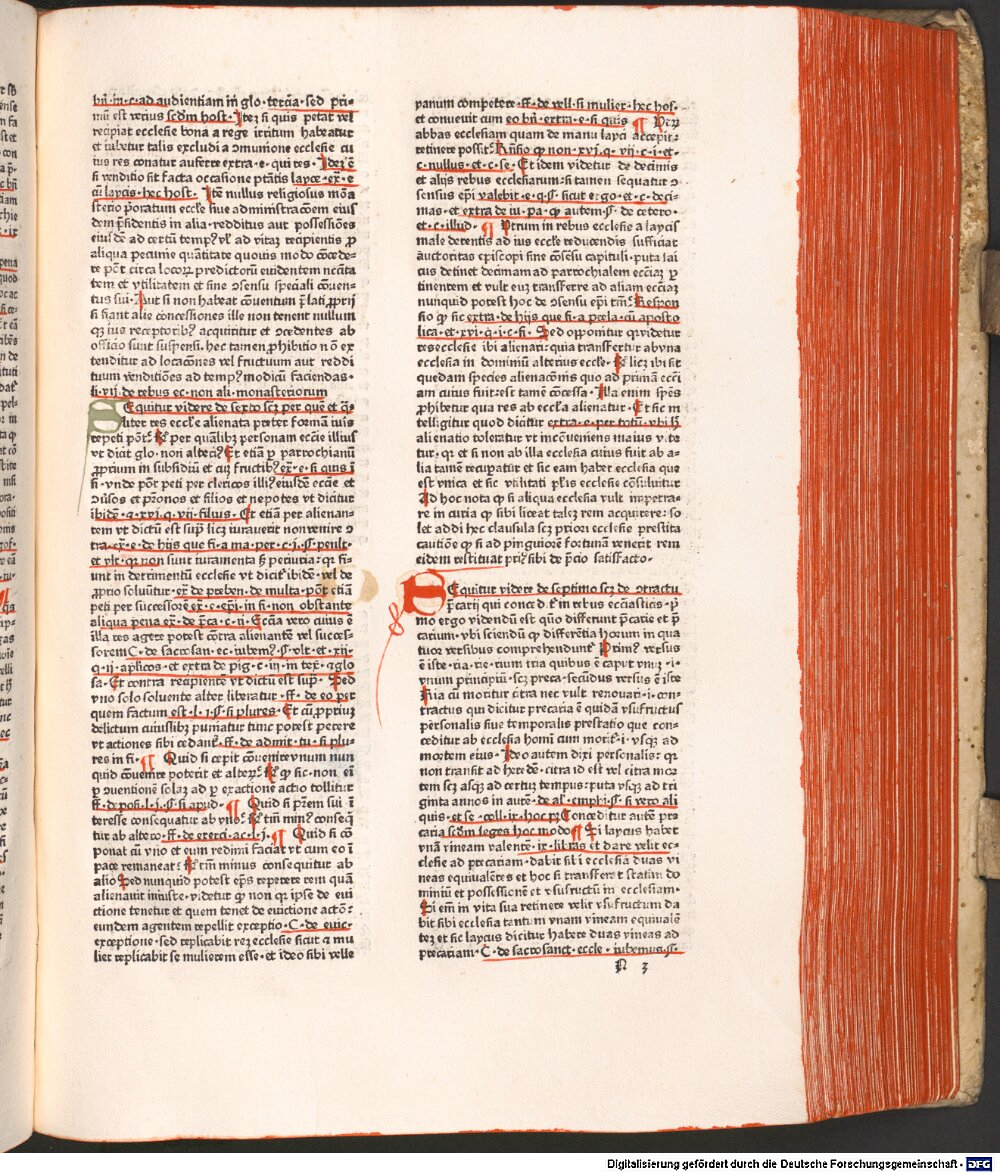 bñ·in·c·ad audientiam in glo·tercia·sed pri-
mū est verius scdm host· Itez si quis petat vel
recipiat ecclesie bona a rege irritum habeatur
et iubetur talis excludi a ɔmunione ecclesie cu
ius res conatur auferre extra·e·qui res· Idez ē
si venditio sit facta occasione ptātis layce·ex̄·e·
cū laycis·hec host· Itē nullus religiosus moā
sterio pōratum eccl'e siue administracōem eius
dem p̄sidentis in alia·redditus aut possessiōes
eiusdē ad certū temp9 vl' ad vitaz recipientis p̱
aliqua pecunie quātitate quouis modo cōcede-
re pōt circa locorꝝ predictorū euidentem ncc̄ita
tem et vtilitatem et sine ɔsensu speciali cōuen-
tus sui· Aut si non habeat cōuentum p̄lati p̱prij
si fiant alie concessiones ille non tenent nullum
qꝫ ius receptorib9 acquiritur et ɔcedentes ab
officio sunt suspensi· hec tamen p̱hibitio nō ex
tenditur ad locacōnes vel fructuum aut reddi
tuum venditiōes ad temp9 modicū faciendas·
li·vij·de rebus ec·non ali·monasteriorum
SEquitur videre de sexto scꝫ per quē et q̄-
liter res eccl'e alienata preter formā iuris
repeti pōt· R̄ per qualib3 personam eccīe illius
vt dicit glo·non alteri9 Et etiā p̱ parrochianū
p̱prium in subsidiū et cuꝫ fructib9 ex̄·e·si quis ī
fi·vnde pōt peti per clericos illi9 eiusdē eccīe et
ɔūsos et pr̄onos et filios et nepotes vt dicitur
ibidē·q·xvi·q·vij·filius· Et etiam per alienan-
tem vt dictū est sup̄ licꝫ iurauerit non venire ɔ
tra·ex̄·e·de hijs que fi·a ma·per·c·i·§·penl't·
et vlt·qꝛ non sunt iuramenta sꝫ periuria·qꝛ fi-
unt in detrimentū ecclesie vt dicit' ibidē·vel de
p̱prio soluūtur·ex̄·de preben·de multa·pōt etiā
peti per successorē ex̄·e·epi·in fi·non obstante
aliqua pena ex̄·de p̄ca·c·ij· Eccīa vero cuius ē
illa res agere potest contra alienantē vel succes-
sorem C·de sacrosan·ec·iubem9 §·vlt·et·xij·
q·ij·ap̄licos·et extra de pig·c·iij·in tex̄·⁊ glo
sa· Et contra recipientē vt dictū est sup̄· Sed
vno solo soluente alter liberatur·ff·de eo per
quem factum est·l·i·§·si plures· Et cū p̱prium
delictum cuiuslib3 puniatur tunc potest petere
vt actiones sibi cedant·ff·de admit·tu·si plu-
res in fi· ¶ Quid si cepit cōuenire vnum nun
quid cōuenire poterit et alteꝝ· R̄ qꝫ sic·non eī
p̱ ɔuentionē solaꝫ ad p̱ exactionē actio tollitur
ff·de posi·l·i·§·si apud· ¶ Quid si p̄rem sui ī
teresse consequatur ab vno· R̄ tm̄ min9 conseq̄
tur ab altero·ff·de exerci·ac·l·i· ¶ Quid si cō
ponat cū vno et eum redimi faciat vt cum eo ī
pace remaneat· R̄ tm̄ minus consequitur ab
alio Sed nunquid potest ep̄s repetere rem quā
alienauit iniuste·videtur qꝫ non qꝛ ipse de eui
ctione tenetur et quem tenet de euictione actō:
eundem agentem repellit exceptio·C·de euic·
exceptione·sed replicabit reꝫ ecclesie sicut ⁊ mu
lier replicabit se mulierem esse·et ideo sibi velle
yanum competere·ff·de vell·si mulier·hec hos·
et conueuit cum eo bñ·extra·e·si quis ¶ Per
abbas ecclesiam quam de manu layci accepit:
retinere possit· Rn̄sio qꝫ non·xvj·q·vij·c·i·et·
c·nullus·et·c·se· Et idem videtur de decimis
et alijs rebus ecclesiarum:si tamen sequatur ɔ-
sensus ep̄i valebit·e·q·§·sicut ergo·et·c·deci-
mas·et extra de iu·pa·qꝫ autem·§·de cetero·
et·c·illud· ¶ Vtrum in rebus ecclesie a laycis
male detentis ad ius eccl'e reducendis sufficiat
auctoritas episcopi sine cōsēsu capituli·puta lai
cus detinet decimam ad parrochialem ecciaꝫ p̱
tinentem et vult eaꝫ transferre ad aliam ecciaꝫ
nunquid potest hoc de ɔsensu epī tm̄· Respon
sio qꝫ sic extra·de hijs que fi·a p̄ela·cū aposto
lica·et·xvi·q·i·c·si· Sed opponitur qꝫ videtur
res ecclesie ibi alienari:quia transfertur ab vna
ecclesia in dominiū alterius eccl'e· R̄ licꝫ ibi sit
quedam species alienacōnis quo ad primā eccī
am cuius fuit:est tamē cōcessa· Illa enim spēs
p̱hibetur qua res ab eccl'ia alienatur· Et sic in
telligitur quod dicitur extra·e·per totū·vbi sꝫ
alienatio toleratur vt incōueniens maius vite
tur·qꝛ et si non ab illa ecclesia cuius fuit ab a-
lia tamē recuperatur et sic eam habet ecclesia que
est vnica et sic vtilitati p̱lis ecclesie cōsuluitur
Ad hoc nota qꝫ si aliqua ecclesia vult impetra-
re in curia qꝫ sibi liceat talez rem acquirere:so
let addi hec clausula scꝫ priori ecclesie prestita
cautiōe qꝫ si ad pinguiorē fortunā venerit rem
eidem restituat pri9 sibi de p̄cio satisfacto·
SEquitur videre de septimo scꝫ de ɔtractu
p̄carij qui conced d·t in rebus ecclīasticis·p̄
mo ergo videndū est quō differunt p̄carie et p̄
carium·vbi sciendū qꝫ differentia horum in qua
tuor versibus comprehendunt' Prim9 versus
ē iste·ria·rie·rium tria quibus ē caput vnuꝫ·i·
vnum principiū·scꝫ preca·secūdus versus ē iste
Ria cū moritur citra nec vult renouari·i·con-
tractus qui dicitur precaria ē quidā vsufructus
personalis siue temporalis prestatio que con-
ceditur ab ecclesia homī cum morit'·i·vsqꝫ ad
mortem eius· Ideo autem dixi personalis: qꝛ
non transit ad heredē·citra id est vel citra mor
tem scꝫ usqꝫ ad certuꝫ tempus:puta vsqꝫ ad tri
ginta annos in autē·de al'·emphi·§·si vero ali
quis·et se·coll·ix·hoc pꝫ Conceditur autē pre
caria scdm leges hoc modo ¶ Si laycus habet
vnā vineam valentē·ix·libras et dare velit ec-
clesie ad precariam·dabit sil'i ecclesia duas vi
neas equiualētes et hoc si transfert statim do
miniū et possessionē et vsufructū in ecclesiam·
Si em̄ in vita sua retinere velit vsufructum da
bit sibi ecclesia tantum vnam vineam equiualē
teꝫ et sic laycus dicitur habere duas vineas ad
precariam·C·de sacrosanct·eccl'e·iubemus·§·
N 3
Digitalisierung gefördert durch die Deutsche Forschungsgemeinschaft - DFG